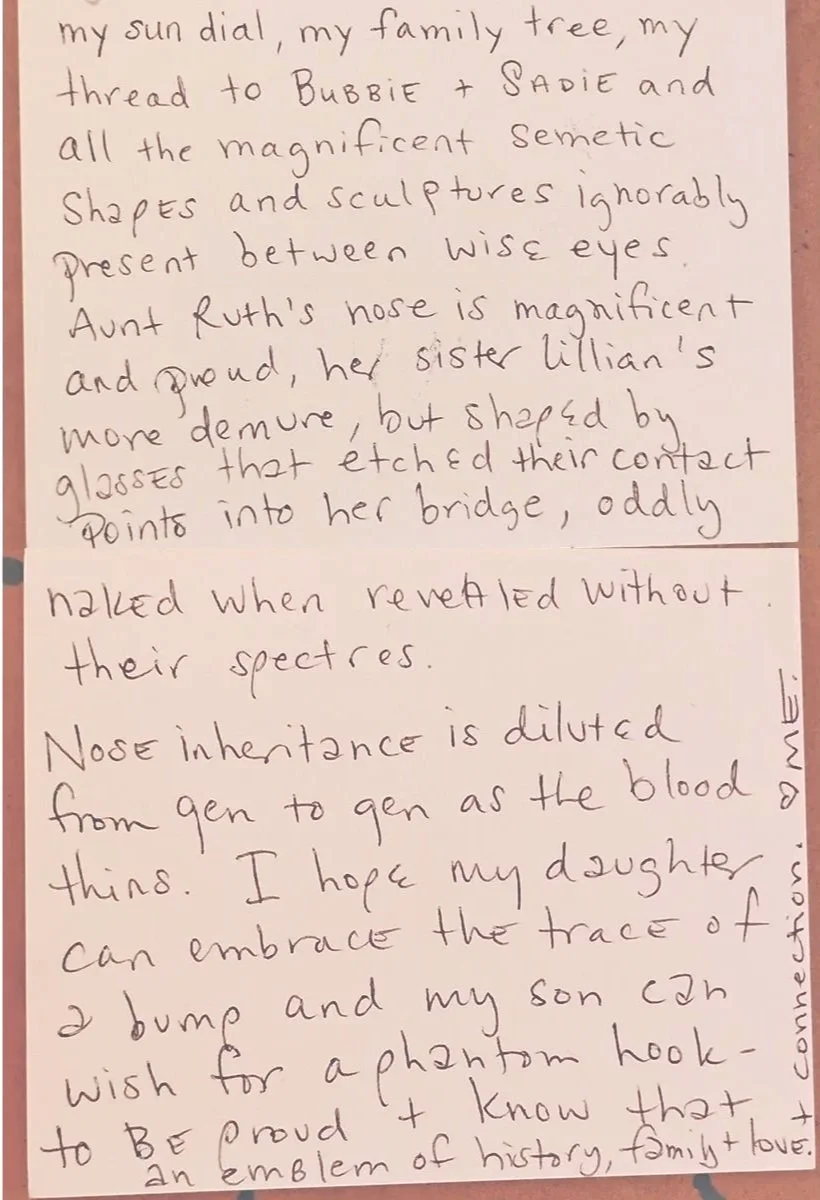 my sun dial, my family tree, my
thread to BUBBIE + SADIE and
all the magnificent Semetic
Shapes and sculptures ignorably
present between wise eyes.
Aunt Ruth's nose is magnificent
and proud, her sister Lillian's
more demure, but shaped by
glasses that etched their contact
points into her bridge, oddly
naked when revealed without
their spectres.
Nose inheritance is diluted
from gen to gen as the blood
thins. I hope my daughter
can embrace the trace of
a bump and my son can
wish for a phantom hook -
to BE proud + know that
an emblem of history, family + love.
+ connection.